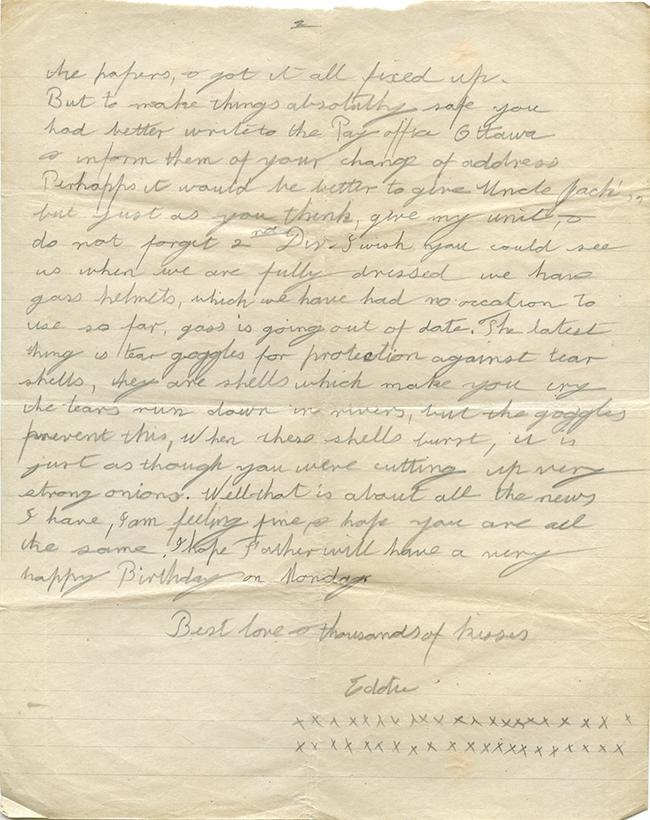 2
the papers, & got it all fixed up.
But to make things absolutly safe you
had better write to the Pay office Ottawa
& inform them of your change of address
Perhapps it would be better to give Uncle Jack's,
but just as you think, give my unit, &
do not forget 2nd Div. I wish you could see
us when we are fully dressed we have
gass helmets, which we have had no occation to
use so far, gass is going out of date. The latest
thing is tear goggles for protection against tear
shells, they are shells which make you cry
the tears run down in rivers, but the goggles
prevent this, When these shells burst, it is
just as though you were cutting up very
strong onions. Well that is about all the news
I have, I am feeling fine, & hope you are all
the same. I hope Father will have a very
happy Birthday on Monday
Best love & thousands of kisses
Eddie
x x x x x x x x x x x x x x x x x x x x
x x x x x x x x x x x x x x x x x x x x